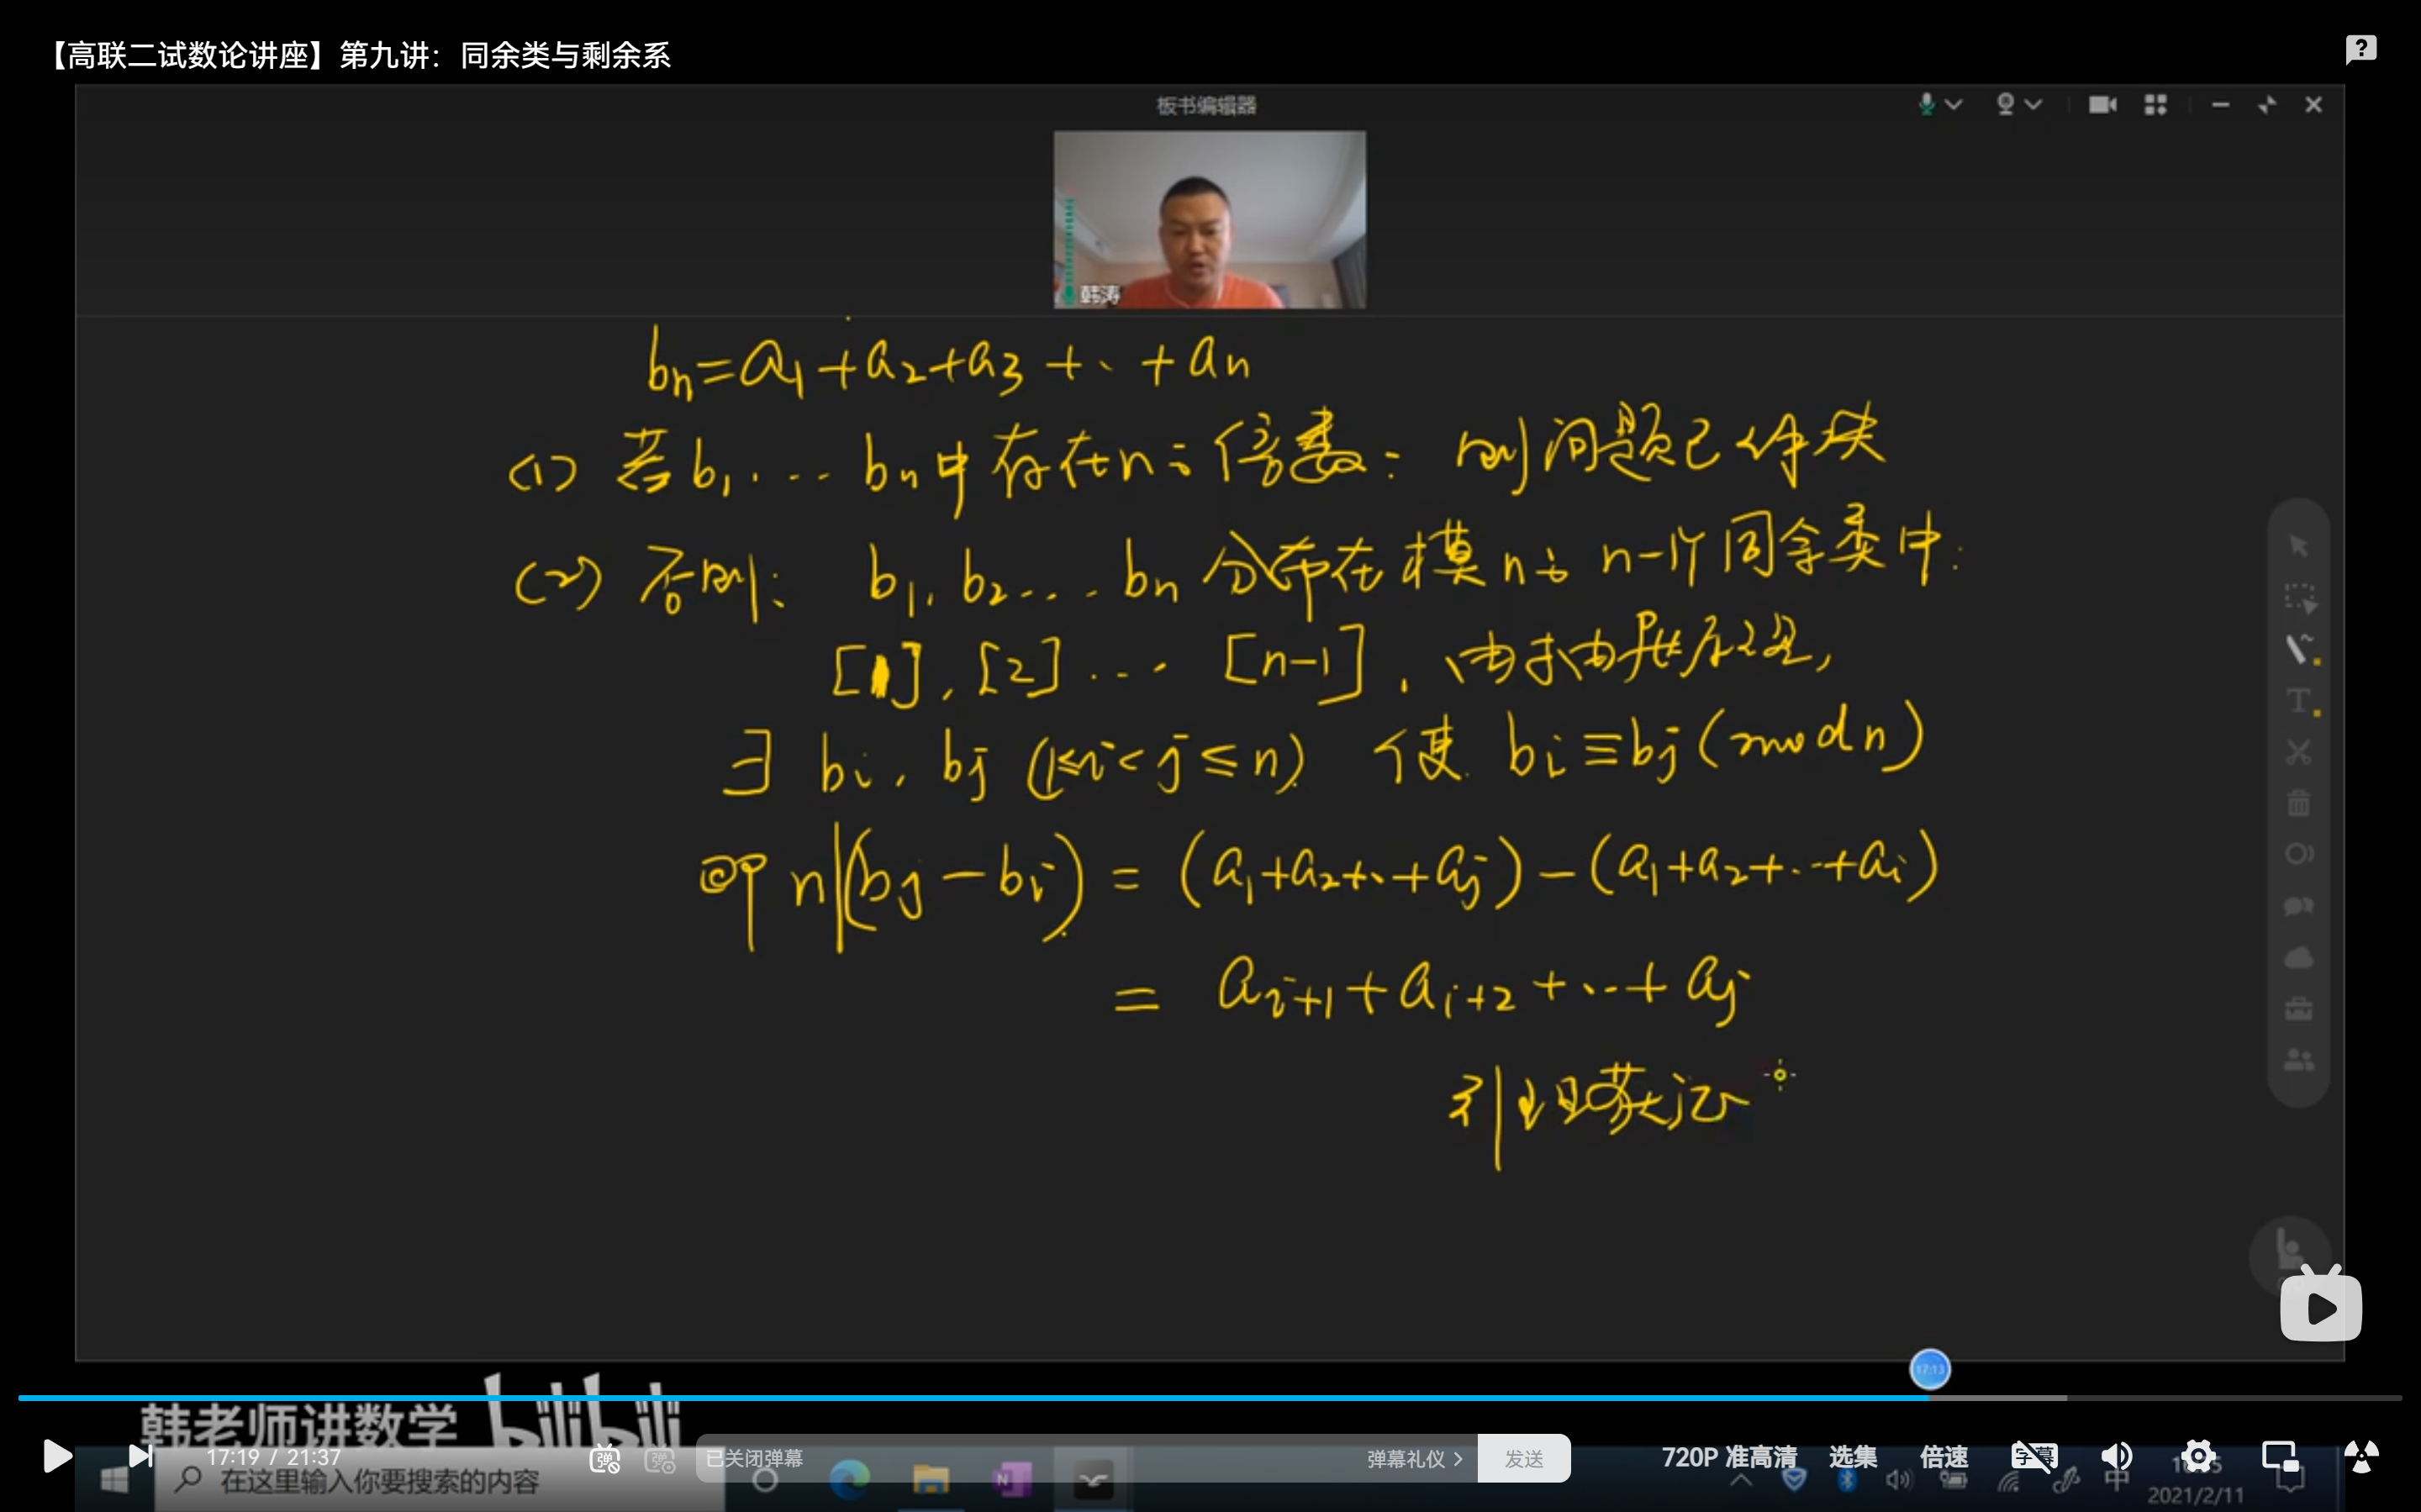 【高联二试数论讲座】第九讲：同余类与剩余系
板书编辑器
韩涛
bn=a1+a2+a3+··+an
(1) 若b1,...bn中存在n之倍数：则问题已解决
(2) 否则：b1,b2...bn分布在模n之n-1个同余类中：
[1],[2]...[n-1]，由抽屉原理，
∃ bi,bj(1≤i<j≤n) 使 bi≡bj(mod n)
即 n|(bj-bi)=(a1+a2+··+aj)-(a1+a2+··+ai)
= ai+1+ai+2+··+aj
引理获证
17:13
韩老师讲数学 bilibili
17:19 / 21:37
弹
已关闭弹幕
弹幕礼仪
发送
720P 准高清
选集
倍速
字幕
在这里输入你要搜索的内容
中
2021/2/11